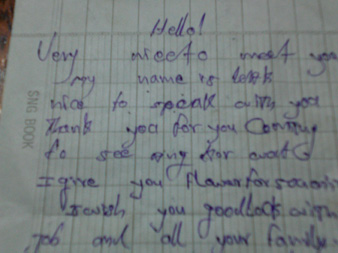 Hello!
Very nice to meet you
my name is
nice to speak with you
thank you for you Comming
to see
I give you Flower for
I wish you goodlock with
job and all your family.
SNG BOOK